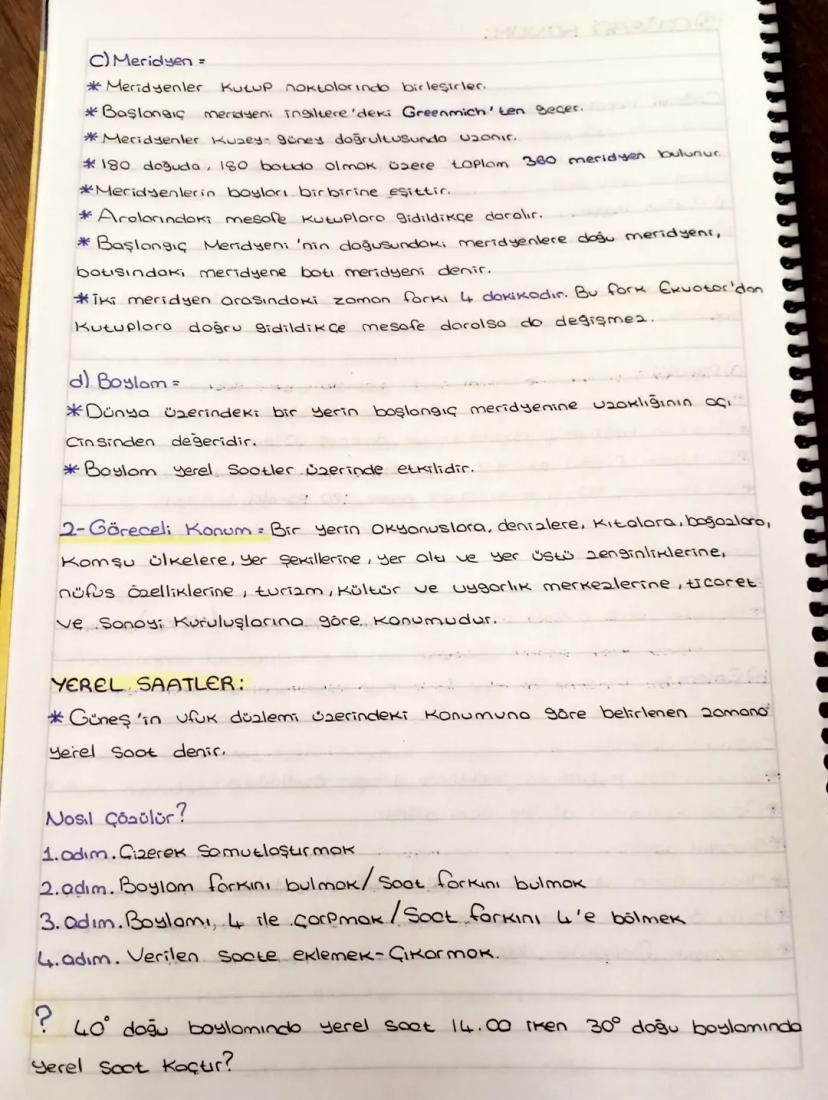 c) Meridyen =
* Meridyenler kutup noktalarında birleşirler.
* Başlangıç meridyeni İngiltere'deki Greenmich'ten geçer.
* Meridyenler kuzey-güney doğrultusunda uzanır.
* 180 doğuda, 180 batıda olmak üzere toplam 360 meridyen bulunur.
* Meridyenlerin boyları birbirine eşittir.
* Aralarındaki mesafe kutuplara gidildikçe daralır.
* Başlangıç Meridyeni'nin doğusundaki meridyenlere doğu meridyeni,
batısındaki meridyene batı meridyeni denir.
* İki meridyen arasındaki zaman farkı 4 dakikadır. Bu fark Ekvator'dan
kutuplara doğru gidildikçe mesafe daralsa da değişmez.
d) Boylam =
* Dünya üzerindeki bir yerin başlangıç meridyenine uzaklığının açı
cinsinden değeridir.
* Boylam yerel saatler üzerinde etkilidir.
2-Göreceli Konum = Bir yerin okyanuslara, denizlere, kıtalara, boğazlara,
komşu ülkelere, yer şekillerine, yer altı ve yer üstü zenginliklerine,
nüfus özelliklerine, turizm, kültür ve uygarlık merkezlerine, ticaret
ve sanayi kuruluşlarına göre konumudur.
YEREL SAATLER:
* Güneş'in ufuk düzlemi üzerindeki konumuna göre belirlenen zamana
yerel saat denir.
Nasıl Çözülür?
1.adım. Çizerek somutlaştırmak
2.adım. Boylam farkını bulmak/Saat farkını bulmak
3.adım. Boylamı, 4 ile çarpmak/Saat farkını 4'e bölmek
4.adım. Verilen saate eklemek-Çıkarmak.
? 40° doğu boylamında yerel saat 14.00 iken 30° doğu boylamında
yerel saat kaçtır?